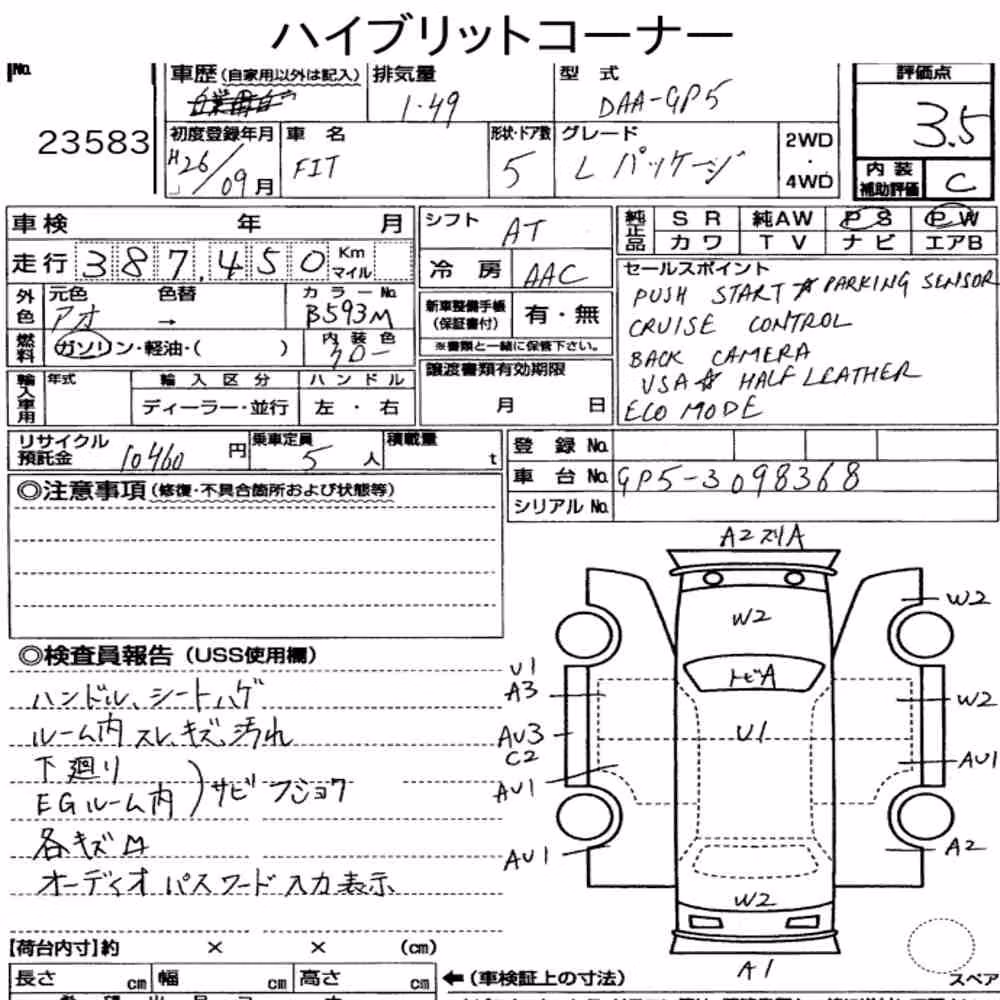 ハイブリットコーナー
No.
23583
車歴 (自家用以外は記入) 排気量 型 式 評価点
自家用 1.49 DAA-GP5 3.5
初度登録年月 車 名 形状・ドア数 グレード 2WD・4WD
H26/09月 FIT 5 Lパッケージ
内装補助評価 C
車検 年 月
シフト AT
純正品 SR 純AW PS PW
カワ TV ナビ エアB
走行 387,450 Km マイル
冷房 AAC
セールスポイント
PUSH START ☆ PARKING SENSOR
CRUISE CONTROL
BACK CAMERA
USA ☆ HALF LEATHER
ECO MODE
外色 元色 色替 カラーNo.
アオ → B593M
新車整備手帳 (保証書付) 有・無
※書類と一緒に保管下さい。
燃料 ガソリン・軽油・( ) 内装色 クロー
譲渡書類有効期限
月 日
輸入車用 年式 輸入区分 ハンドル
ディーラー・並行 左・右
リサイクル預託金 10460 円 乗車定員 5 人 積載量 t
登録 No.
車台 No. GP5-3098368
シリアル No.
◎注意事項 (修復・不具合箇所および状態等)
◎検査員報告 (USS使用欄)
ハンドル、シートハゲ
ルーム内 スレ、キズ、汚れ
下廻り
EGルーム内 ) サビ フショク
各キズ凹
オーディオ パスワード 入力表示
A2 スリA
W2
W2
U1
A3
トビA
W2
AU3
C2
U1
AU1
AU1
AU1
A2
W2
A1
【荷台内寸】約 × × (cm)
長さ cm 幅 cm 高さ cm ←(車検証上の寸法)
スペア